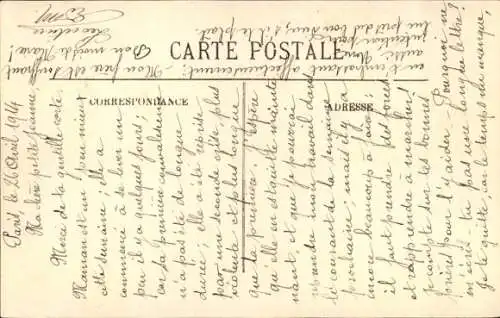 CARTE POSTALE
CORRESPONDANCE
ADRESSE
Paris, le 26 Avril 1914
Ma chère petite Jeanne,
Merci de ta gentille carte.
Maman est un peu mieux
cette semaine; elle a
commencé à se lever un
peu il y a quelques jours;
car la première convalescence
n'a pas été de longue
durée; elle a été reprise
par une seconde crise plus
violente et plus longue
que la première. J'espère
qu'elle en est quitte mainte
nant, et que je pourrai
reprendre mon travail dans
le courant de la semaine
prochaine; mais il y a
encore beaucoup à faire;
il faut prendre des forces
et rapprendre à marcher!
Je compte sur tes bonnes
prières pour l'y aider. Pourquoi ne
m'écris-tu pas une longue lettre?
Je te quitte, car le temps me manque
en t'embrassant affectueusement.
Mon frère et
Bon mois de Marie!